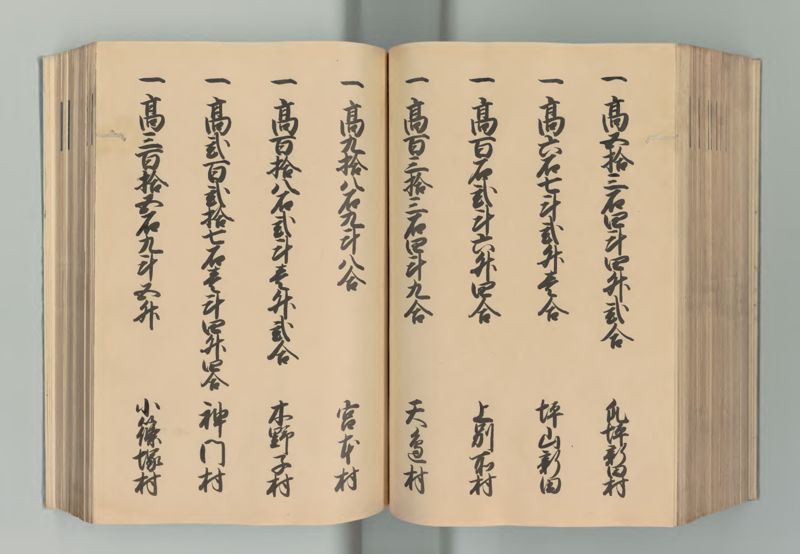 一 高五拾三石四斗四升弐合 瓦坪新田村
一 高六石七斗弐升壱合 坪山新田
一 高百石弐斗六升四合 上別所村
一 高百三拾三石四斗九合 天邉村
一 高九拾八石九斗八合 宮本村
一 高百拾八石弐斗壱升弐合 木野子村
一 高弐百弐拾七石壱斗四升四合 神門村
一 高三百拾五石九斗五升 小篠塚村